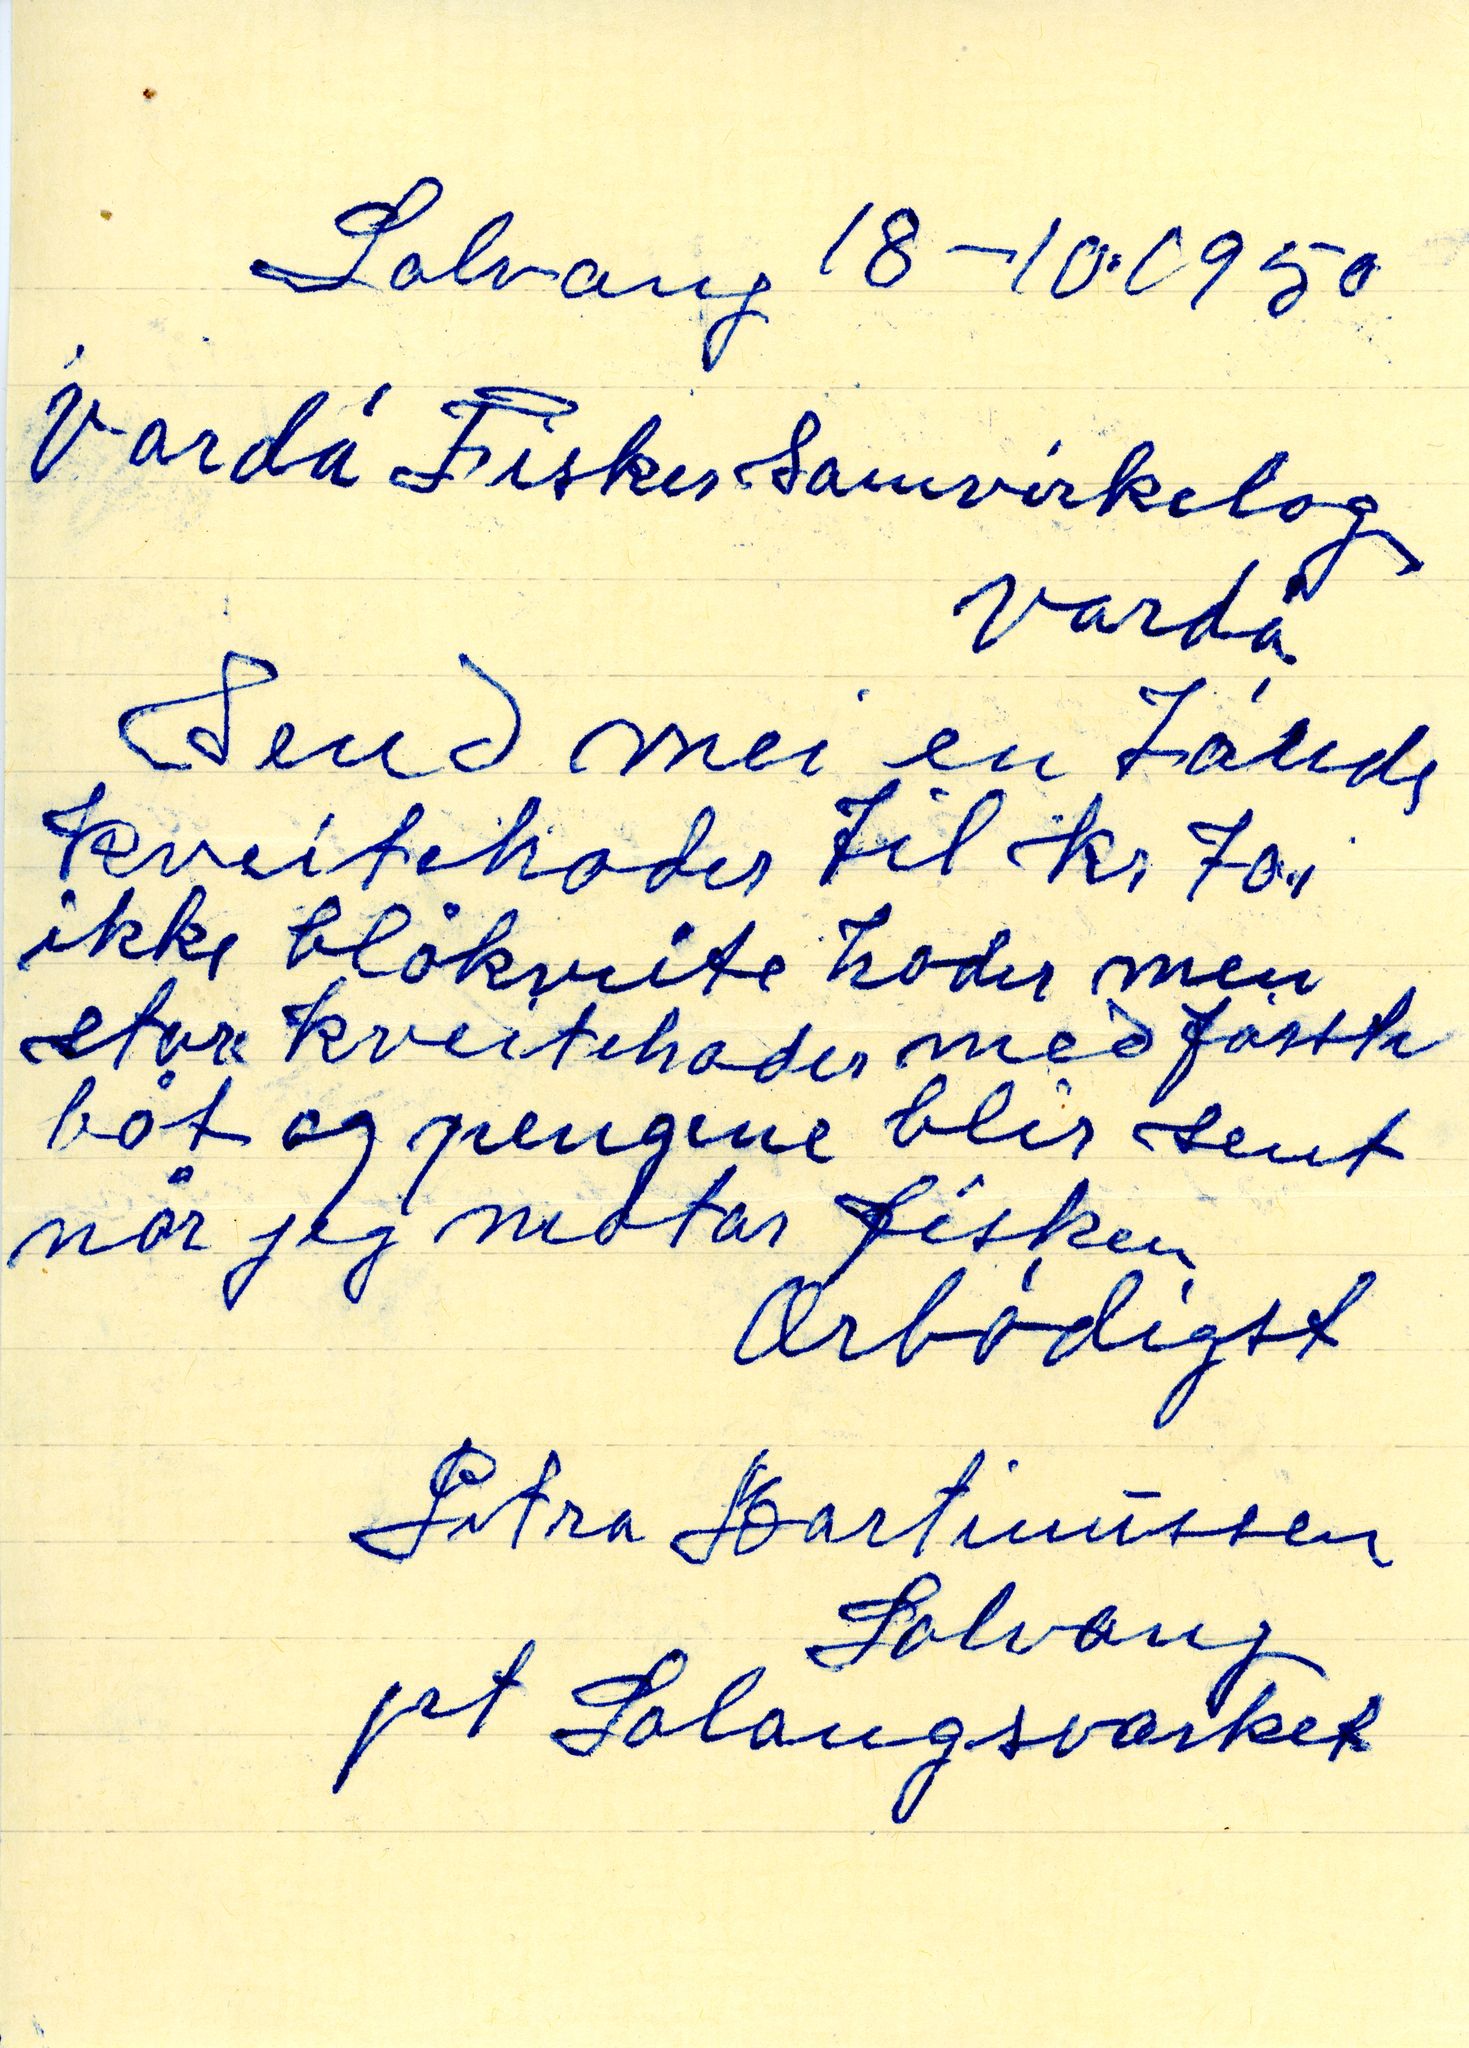 Solvang 18-10.1950
Vardó Fisker Samvirkelag
Vardó
Send mei en Tónde
kveitehoder til kr 70,,
ikke blåkveite hoder men
store kveitehoder med fósste
båt og pengene blir sent
når jeg motar fisken
Ærbódigst
Petra Martinussen
Solvang
pst Salangsverket